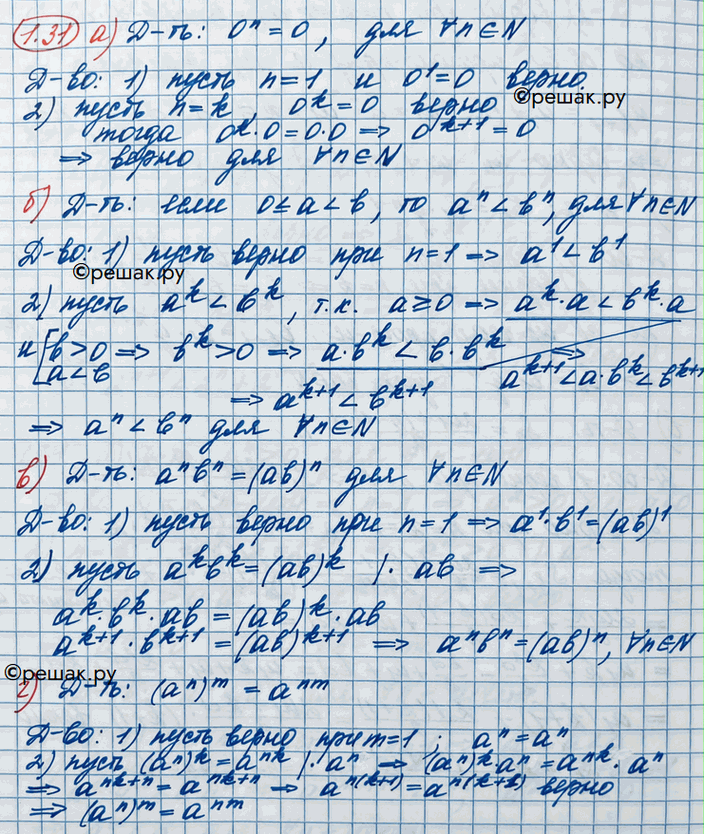 1.31 а) Д-ть: 0ⁿ = 0, для ∀n∈N
Д-во: 1) пусть n=1 и 0¹=0 верно.
©решак.ру
2) пусть n=k, 0ᵏ=0 верно
тогда 0ᵏ·0=0·0 ⇒ 0ᵏ⁺¹=0
⇒ верно для ∀n∈N
б) Д-ть: если 0≤a<b, то aⁿ<bⁿ, для ∀n∈N
Д-во: 1) пусть верно при n=1 ⇒ a¹<b¹
©решак.ру
2) пусть aᵏ<bᵏ, т.к. a≥0 ⇒ aᵏ·a<bᵏ·a
и [b>0 ⇒ bᵏ>0 ⇒ a·bᵏ<b·bᵏ ⇒
a<b aᵏ⁺¹<a·bᵏ<bᵏ⁺¹
⇒ aᵏ⁺¹<bᵏ⁺¹
⇒ aⁿ<bⁿ для ∀n∈N
в) Д-ть: aⁿbⁿ=(ab)ⁿ для ∀n∈N
Д-во: 1) пусть верно при n=1 ⇒ a¹·b¹=(ab)¹
2) пусть aᵏbᵏ=(ab)ᵏ |·ab ⇒
aᵏ·bᵏ·ab=(ab)ᵏ·ab
aᵏ⁺¹·bᵏ⁺¹=(ab)ᵏ⁺¹ ⇒ aⁿbⁿ=(ab)ⁿ, ∀n∈N
©решак.ру
г) Д-ть: (aⁿ)ᵐ = aⁿᵐ
Д-во: 1) пусть верно при m=1; aⁿ=aⁿ
2) пусть (aⁿ)ᵏ=aⁿᵏ |·aⁿ ⇒ (aⁿ)ᵏ·aⁿ=aⁿᵏ·aⁿ
⇒ aⁿᵏ⁺ⁿ=aⁿᵏ⁺ⁿ ⇒ aⁿ⁽ᵏ⁺¹⁾=aⁿ⁽ᵏ⁺¹⁾ верно
⇒ (aⁿ)ᵐ=aⁿᵐ